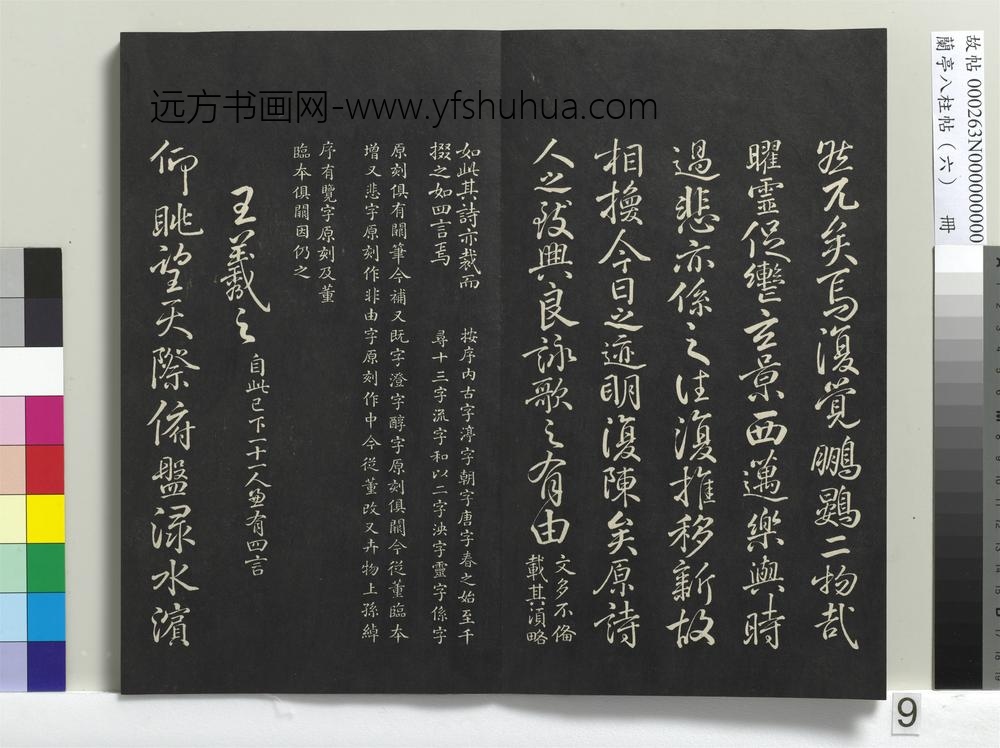 远方书画网-www.yfshuhua.com
故帖 000263N000000000
蘭亭八柱帖（六） 冊
然兀矣焉復覺鵬鷃二物哉
曜靈促轡玄景西邁樂與時
過悲亦係之往復推移新故
相換今日之迹明復陳矣原詩
人之致興良詠歌之有由
文多不備
載其湏略
如此其詩亦裁而
掇之如四言焉
按序内古字渟字朝字唐字春之始至千
尋十三字流字和以二字泱字靈字係字
原刻俱有闕筆今補又既字澄字醇字原刻俱闕今從董臨本
增又悲字原刻作非由字原刻作中今從董改又卉物上孫綽
序有覽字原刻及董
臨本俱闕因仍之
王羲之
自此已下一十一人並有四言
仰眺望天際俯盤渌水濱
9